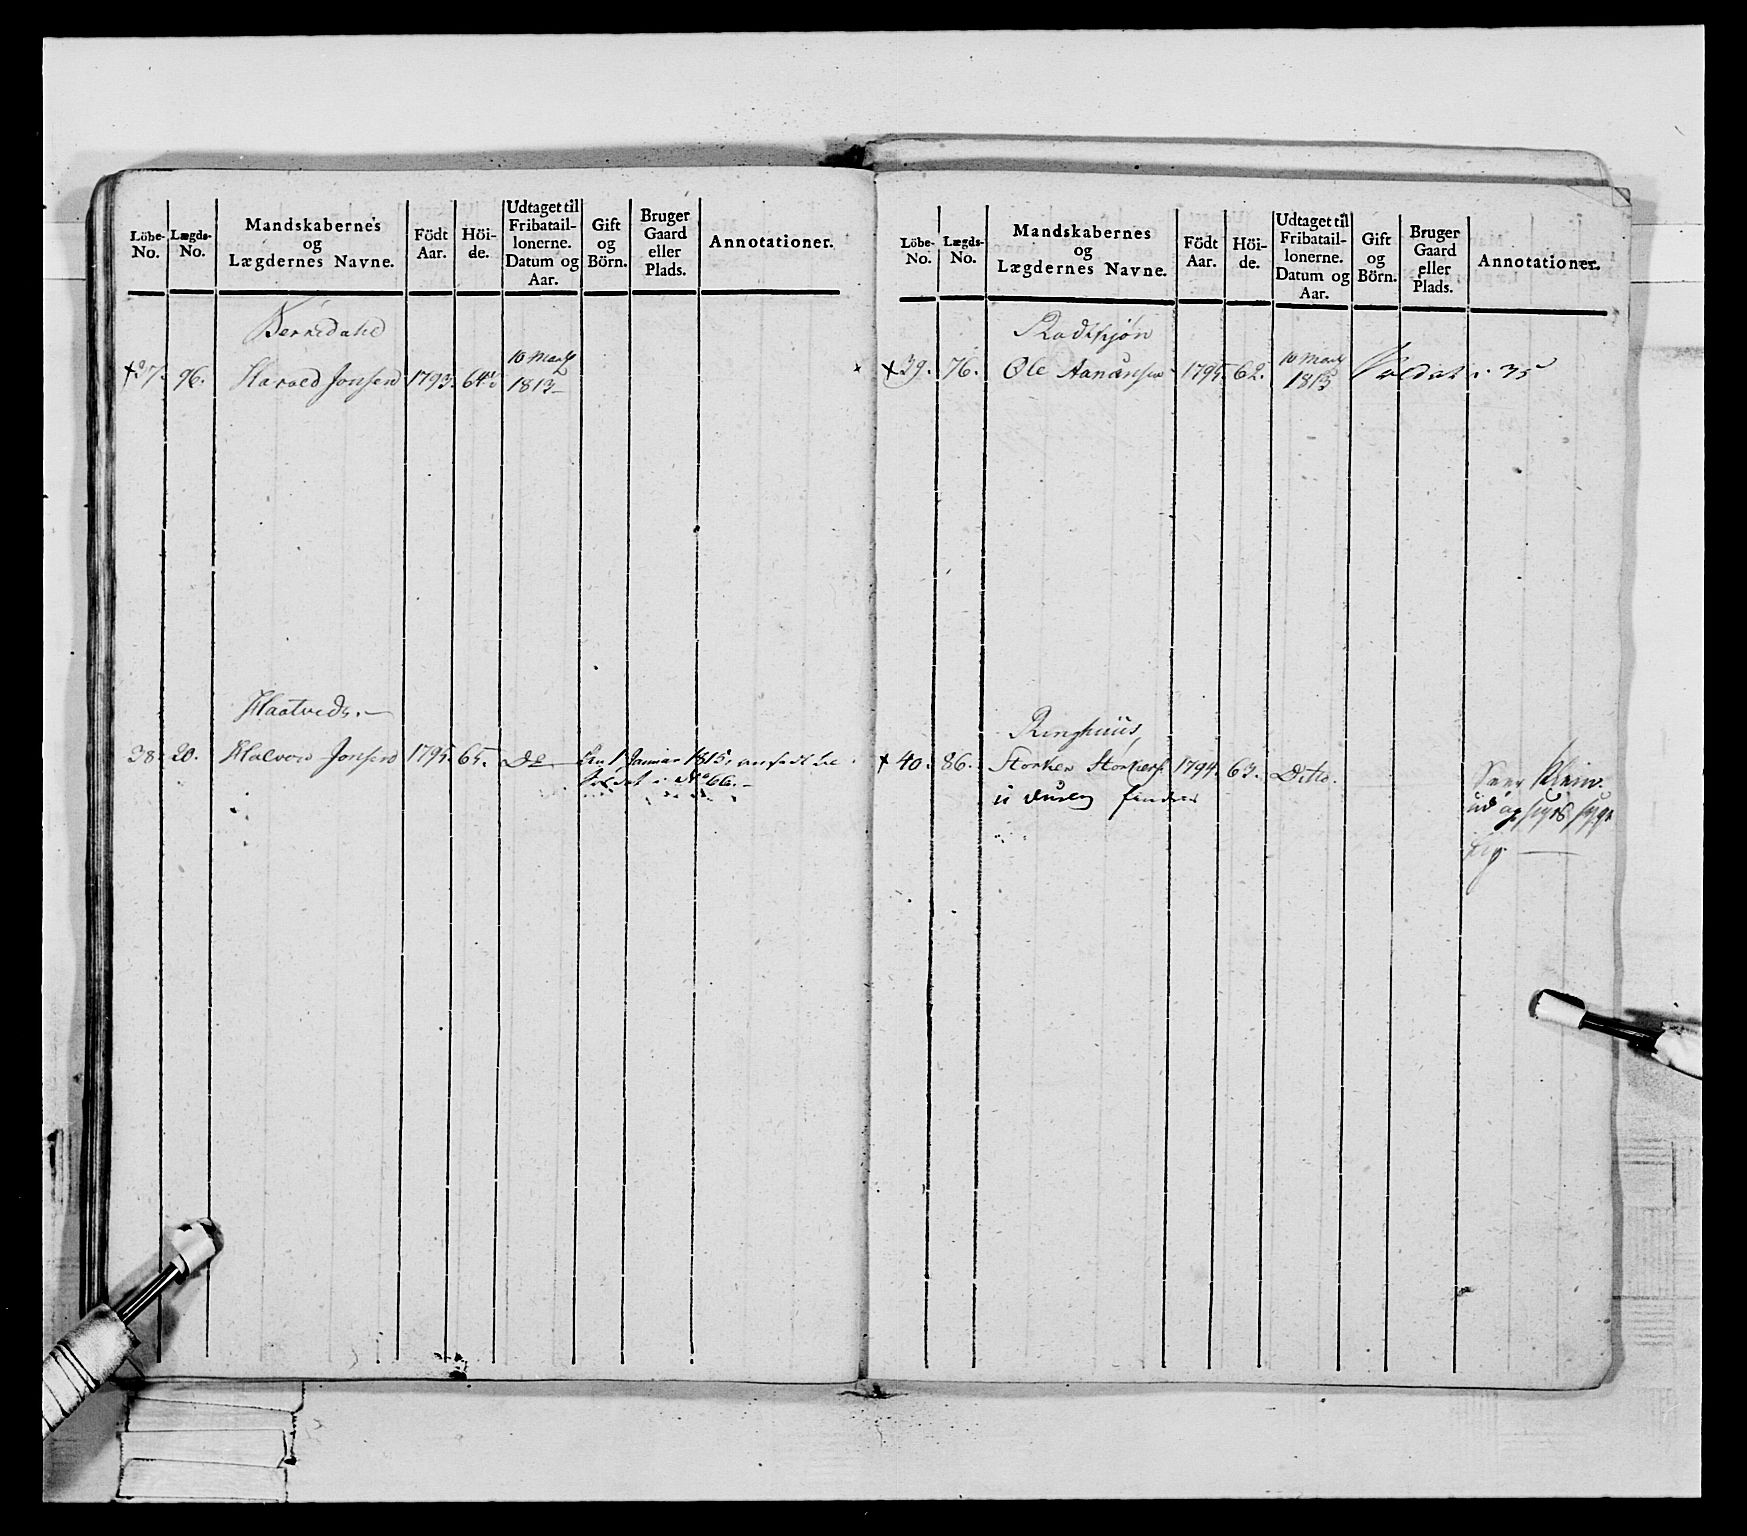 Löbe- No.
Lægds- No.
Mandskabernes og Lægdernes Navne.
Födt Aar.
Höi- de.
Udtaget til Fribatail- lonerne. Datum og Aar.
Gift og Börn.
Bruger Gaard eller Plads.
Annotationer.
37. 96. Harald Jonsen 1793. 64½ 10 Marty 1813
Haatveds.
38. 20. Halvor Jonsen 1795. 65. Do Den 1 Januar 1815, ansadt
Soldat i No 66.
Löbe- No.
Lægds- No.
Mandskabernes og Lægdernes Navne.
Födt Aar.
Höi- de.
Udtaget til Fribatail- lonerne. Datum og Aar.
Gift og Börn.
Bruger Gaard eller Plads.
Annotationer.
39. 76. Ole Aanansen 1795. 62. 10 Marty 1813 Soldat i 35
Ringhuus,
40. 86. Storker 1794. 63. Ditto.